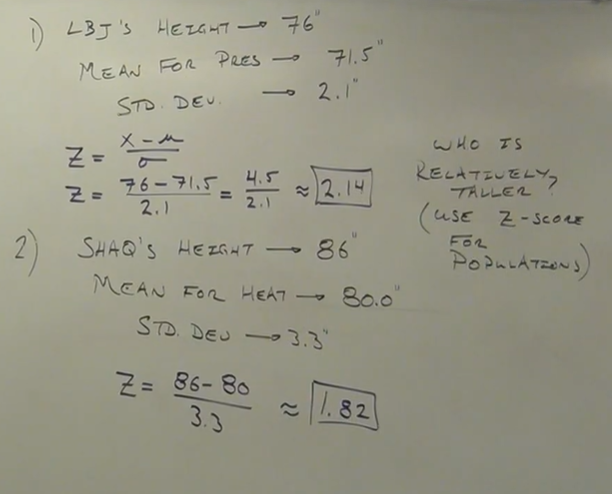 1) LBJ'S HEIGHT → 76"
MEAN FOR PRES → 71.5"
STD. DEV. → 2.1"
Z = x - μ / σ
Z = 76 - 71.5 / 2.1 = 4.5 / 2.1 ≈ 2.14
WHO IS
RELATIVELY
TALLER?
(USE Z-SCORE
FOR
POPULATIONS)
2) SHAQ'S HEIGHT → 86"
MEAN FOR HEAT → 80.0"
STD. DEV → 3.3"
Z = 86 - 80 / 3.3 ≈ 1.82